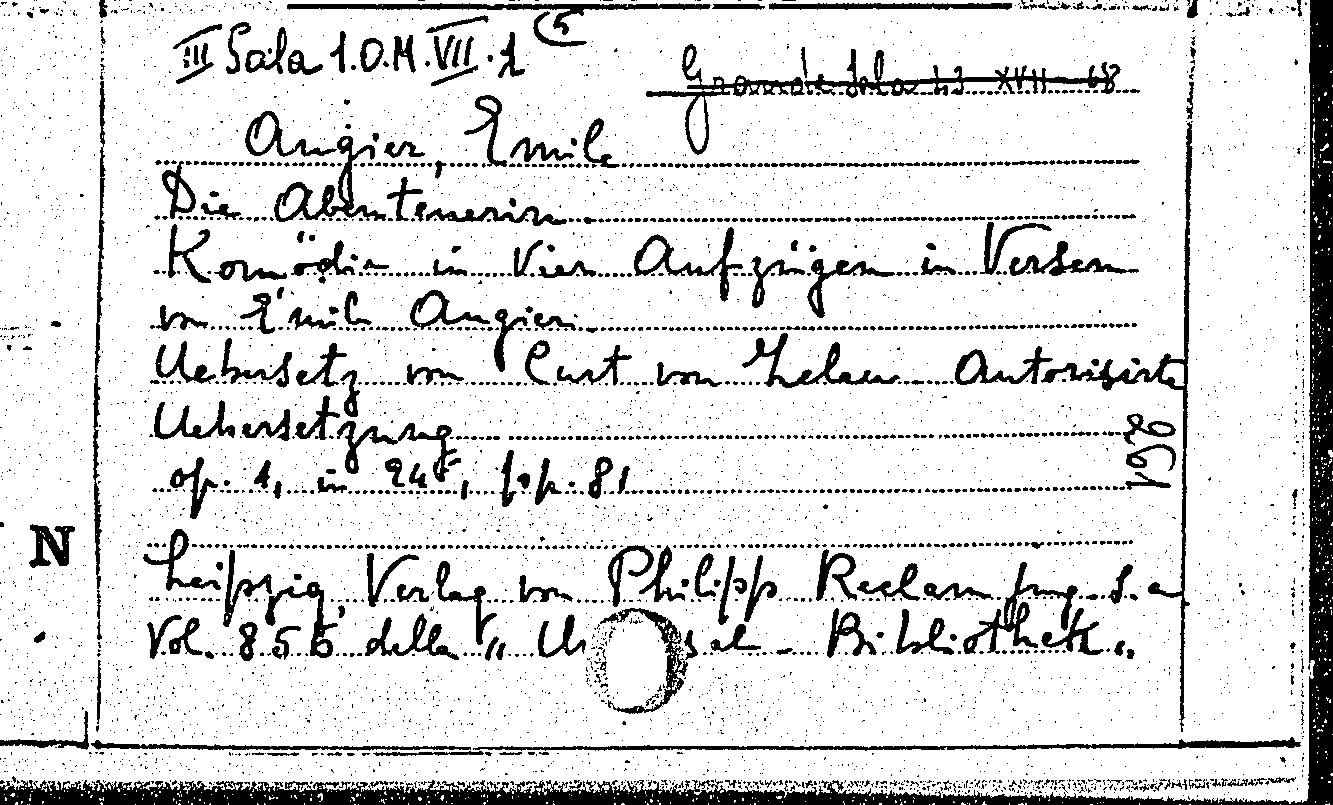 III Sala 1.O.M.VII.1 (5
Grande Sala 43 XVII 68
Augier, Emile
Die Abenteuerin.
Komödie in vier Aufzügen in Versen
von Emile Augier.
Uebersetz von Curt von Autorisirte
Uebersetzung
op. 1, in 24°, pp. 81
1962
N
Leipzig, Verlag von Philipp Reclam jung. s. a
Vol. 855 della „ Un sal - Bibliothek „